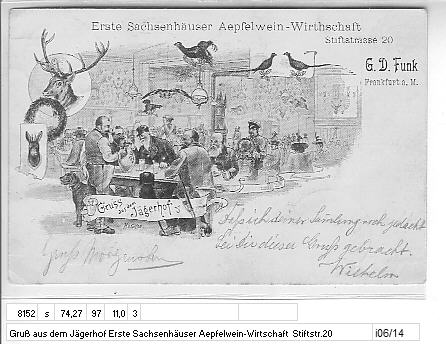 Erste Sachsenhäuser Aepfelwein-Wirthschaft
Stiftstrasse 20
G. D. Funk
Frankfurt a. M.
Gruss aus dem Jägerhof
dieser Gruß gebracht.
Wilhelm
Gruß
8152 s 74,27 97 11,0 3
Gruß aus dem Jägerhof Erste Sachsenhäuser Aepfelwein-Wirtschaft Stiftstr.20 i06/14